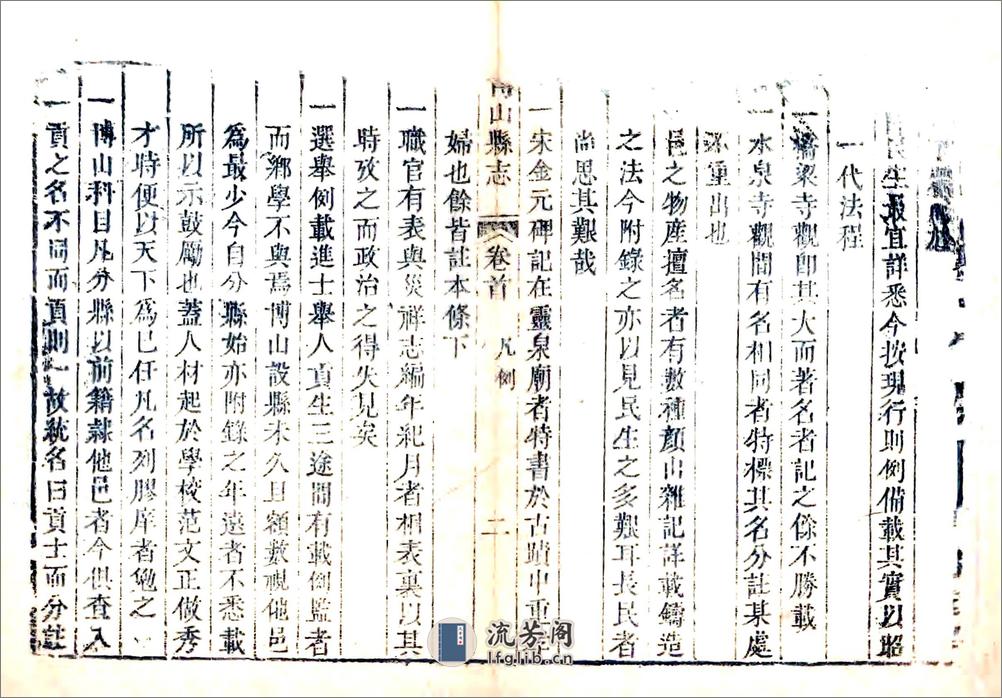 民生最宜詳悉今按現行則例備載其實以昭
一代法程
一橋梁寺觀卽其大而著名者記之餘不勝載
一水泉寺觀間有名相同者特標其名分註某處
不重出也
邑之物產擅名者有數種顏山雜記詳載鑄造
之法今附錄之亦以見民生之多艱耳長民者
尚思其艱哉
一宋金元碑記在靈泉廟者特書於古蹟中重
山縣志
卷首
凡例
二
婦也餘皆註本條下
一職官有表與災祥志編年紀月者相表裏以其
時攷之而政治之得失見矣
一選舉例載進士舉人貢生三途間有載例監者
而鄉學不與焉博山設縣未久且額數視他邑
為最少今自分縣始亦附錄之年遠者不悉載
所以示鼓勵也蓋人材起於學校范文正做秀
才時便以天下爲己任凡名列膠庠者勉之
一博山科目凡分縣以前籍隸他邑者今俱查入
一貢之名不同而貢則一故統名曰貢士而分註
流芳阁
lfglib.cn